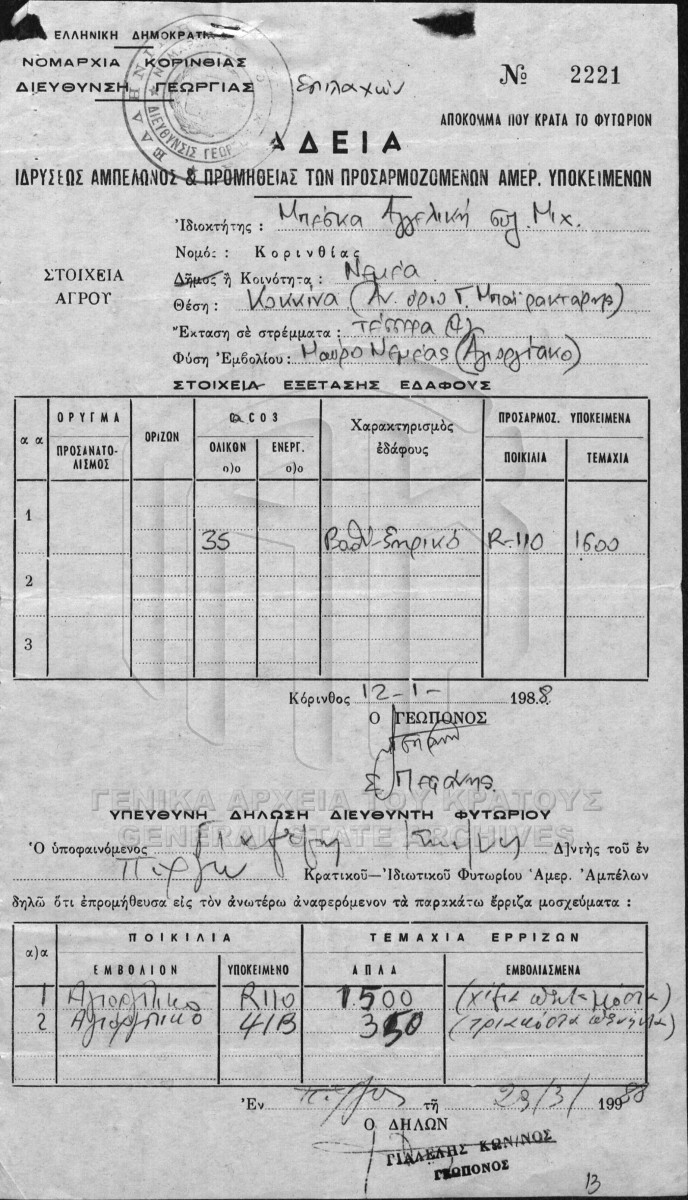 ΕΛΛΗΝΙΚΗ ΔΗΜΟΚΡΑΤΙΑ
ΝΟΜΑΡΧΙΑ ΚΟΡΙΝΘΙΑΣ
ΔΙΕΥΘΥΝΣΗ ΓΕΩΡΓΙΑΣ
Επιλαχών
№ 2221
ΑΠΟΚΟΜΜΑ ΠΟΥ ΚΡΑΤΑ ΤΟ ΦΥΤΩΡΙΟΝ
ΑΔΕΙΑ
ΙΔΡΥΣΕΩΣ ΑΜΠΕΛΩΝΟΣ & ΠΡΟΜΗΘΕΙΑΣ ΤΩΝ ΠΡΟΣΑΡΜΟΖΟΜΕΝΩΝ ΑΜΕΡ. ΥΠΟΚΕΙΜΕΝΩΝ
ΣΤΟΙΧΕΙΑ
ΑΓΡΟΥ
Ἰδιοκτήτης : Μπέσκα Αγγελική συζ. Μιχ.
Νομός : Κορινθίας
Δῆμος ἢ Κοινότητα : Νεμέα
Θέση : Κοκκινα (Αν. όριο Γ. Μπαϊρακτάρης)
Ἔκταση σὲ στρέμματα : τέσσερα (4)
Φύση Ἐμβολίου : Μαύρο Νεμέας (Αγιωργίτικο)
ΣΤΟΙΧΕΙΑ ΕΞΕΤΑΣΗΣ ΕΔΑΦΟΥΣ
α α
ΟΡΥΓΜΑ
ΠΡΟΣΑΝΑΤΟ-
ΛΙΣΜΟΣ
ΟΡΙΖΩΝ
CO3
ΟΛΙΚΟΝ
ο)ο
ΕΝΕΡΓ.
ο)ο
Χαρακτηρισμὸς
ἐδάφους
ΠΡΟΣΑΡΜΟΖ. ΥΠΟΚΕΙΜΕΝΑ
ΠΟΙΚΙΛΙΑ ΤΕΜΑΧΙΑ
1
35 Βαθύ-ξηρικό R-110 1600
2
3
Κόρινθος 12-1- 1988.
Ο ΓΕΩΠΟΝΟΣ
ΓΕΝΙΚΑ ΑΡΧΕΙΑ ΤΟΥ ΚΡΑΤΟΥΣ
ΥΠΕΥΘΥΝΗ ΔΗΛΩΣΗ ΔΙΕΥΘΥΝΤΗ ΦΥΤΩΡΙΟΥ
GENERAL STATE ARCHIVES
Ὁ ὑποφαινόμενος Δ]ντὴς τοῦ ἐν
Κρατικοῦ—Ἰδιωτικοῦ Φυτωρίου Ἀμερ. Ἀμπέλων
δηλῶ ὅτι ἐπρομήθευσα εἰς τὸν ἀνωτέρω ἀναφερόμενον τὰ παρακάτω ἔρριζα μοσχεύματα :
α)α
ΠΟΙΚΙΛΙΑ
ΤΕΜΑΧΙΑ ΕΡΡΙΖΩΝ
ΕΜΒΟΛΙΟΝ ΥΠΟΚΕΙΜΕΝΟ ΑΠΛΑ ΕΜΒΟΛΙΑΣΜΕΝΑ
1 Αγιοργιτικο R110 1500 (χίλια πεντακόσια)
2 Αγιοργιτικο 41B 350 (τριακόσια πενήντα)
Ἐν τῇ 29/3/ 1998
Ο ΔΗΛΩΝ
ΓΙΑΛΕΛΗΣ ΚΩΝ/ΝΟΣ
ΓΕΩΠΟΝΟΣ
13